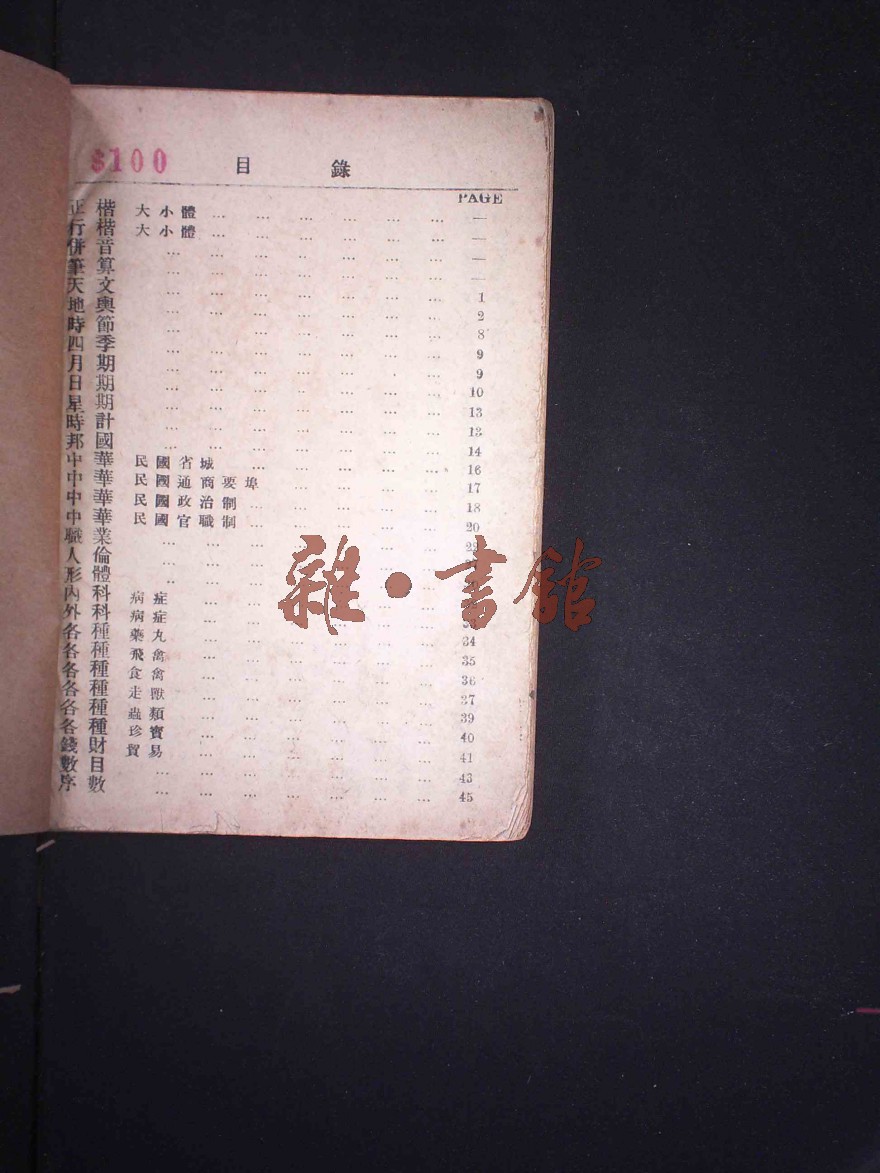 $100
目錄
PAGE
正楷大小體 … … … … … … —
行楷大小體 … … … … … … —
併音 … … … … … … … —
筆算 … … … … … … … —
天文 … … … … … … … 1
地輿 … … … … … … … 2
時節 … … … … … … … 8
四季 … … … … … … … 9
月期 … … … … … … … 9
日期 … … … … … … … 10
星期 … … … … … … … 13
時計 … … … … … … … 13
邦國 … … … … … … … 14
中華民國省城 … … … … … 16
中華民國通商要埠 … … … … 17
中華民國政治制 … … … … … 18
中華民國官職制 … … … … … 20
職業 … … … … … … … 22
人倫 … … … … … … …
形體 … … … … … … …
內科病症 … … … … … …
外科病症 … … … … … …
各種藥丸 … … … … … … 34
各種飛禽 … … … … … … 35
各種食禽 … … … … … … 36
各種走獸 … … … … … … 37
各種蟲類 … … … … … … 39
各種珍寶 … … … … … … 40
錢財貿易 … … … … … … 41
數目 … … … … … … … 43
序數 … … … … … … … 45
雜·書館